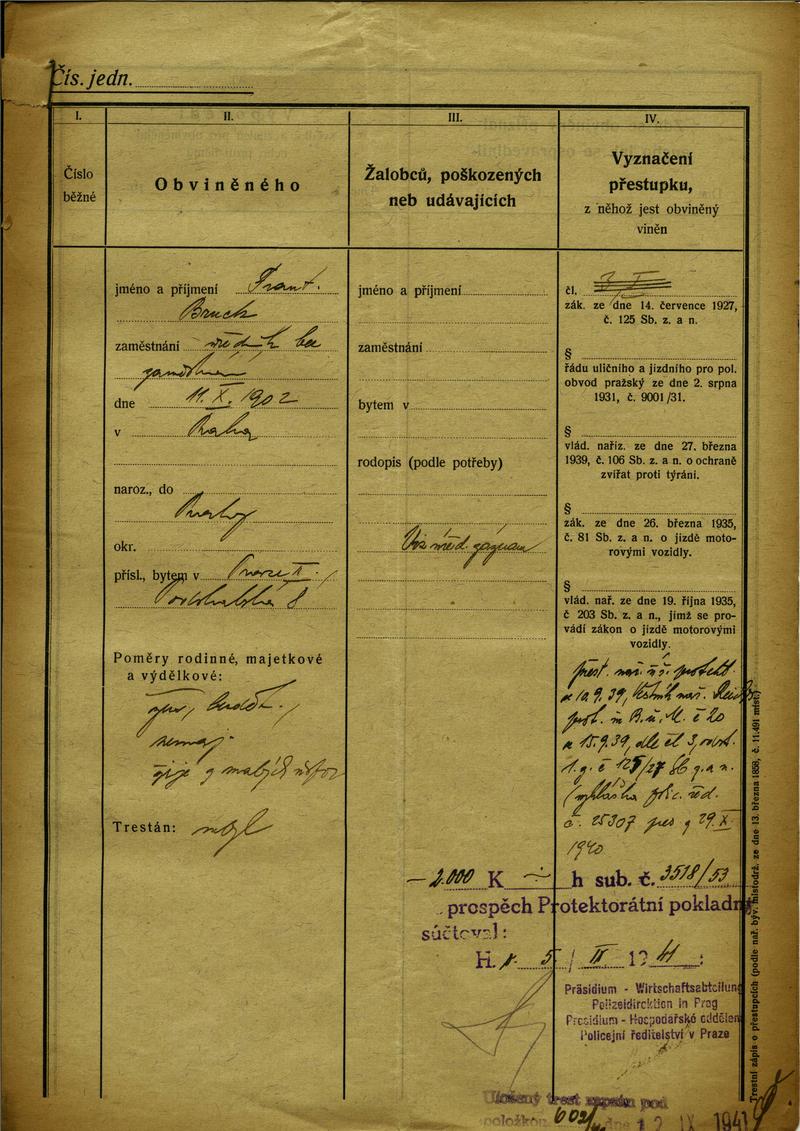 Čís. jedn.
I.
Číslo
běžné
II.
Obviněného
III.
Žalobců, poškozených
neb udávajících
IV.
Vyznačení
přestupku,
z něhož jest obviněný
vinén
jméno a příjmení Frant.
Bruck
zaměstnání úředník bez
zaměstnání
dne 11. X. 1902
v Praha
naroz., do
Prahy
okr.
přísl., bytem v Praze II.,
8
Poměry rodinné, majetkové
a výdělkové:
nemaj.
žije z malých úspor
Trestán:
jméno a příjmení
zaměstnání
bytem v
rodopis (podle potřeby)
Viz úřed. záznam
čl. 3
zák. ze dne 14. července 1927,
č. 125 Sb. z. a n.
§
řádu uličního a jízdního pro pol.
obvod pražský ze dne 2. srpna
1931, č. 9001/31.
§
vlád. naříz. ze dne 27. března
1939, č. 106 Sb. z. a n. o ochraně
zvířat proti týrání.
§
zák. ze dne 26. března 1935,
č. 81 Sb. z. a n. o jízdě moto-
rovými vozidly.
§
vlád. nař. ze dne 19. října 1935,
č 203 Sb. z. a n., jímž se pro-
vádí zákon o jízdě motorovými
vozidly.
přest. nař. říš. protekt.
z 10.9.39, Věstník nař. Reichs
prot. in B. u. M. č 20
z 15.9.39, dle čl 3, odst.
1. z. č 125/27 Sb z. a n.
(vyhláška pol. řed.
č. 25307 pres z 29. X.
1940
– 2.000 K – h sub. č. 3518/53
prospěch Protektorátní pokladny
súčtoval:
H. 5/ II 1941 :
Präsidium - Wirtschaftsabteilung
Polizeidirektion in Prag
Presidium - Hospodářské oddělen
Policejní ředitelství v Praze
Uložený trest zapsán pod
položkou 602/ dne 12 IX 1941
Trestní zápis o přestupcích (podle nař. býv. místodrž. ze dne 13. března 1858, č. 11.491 míst.)